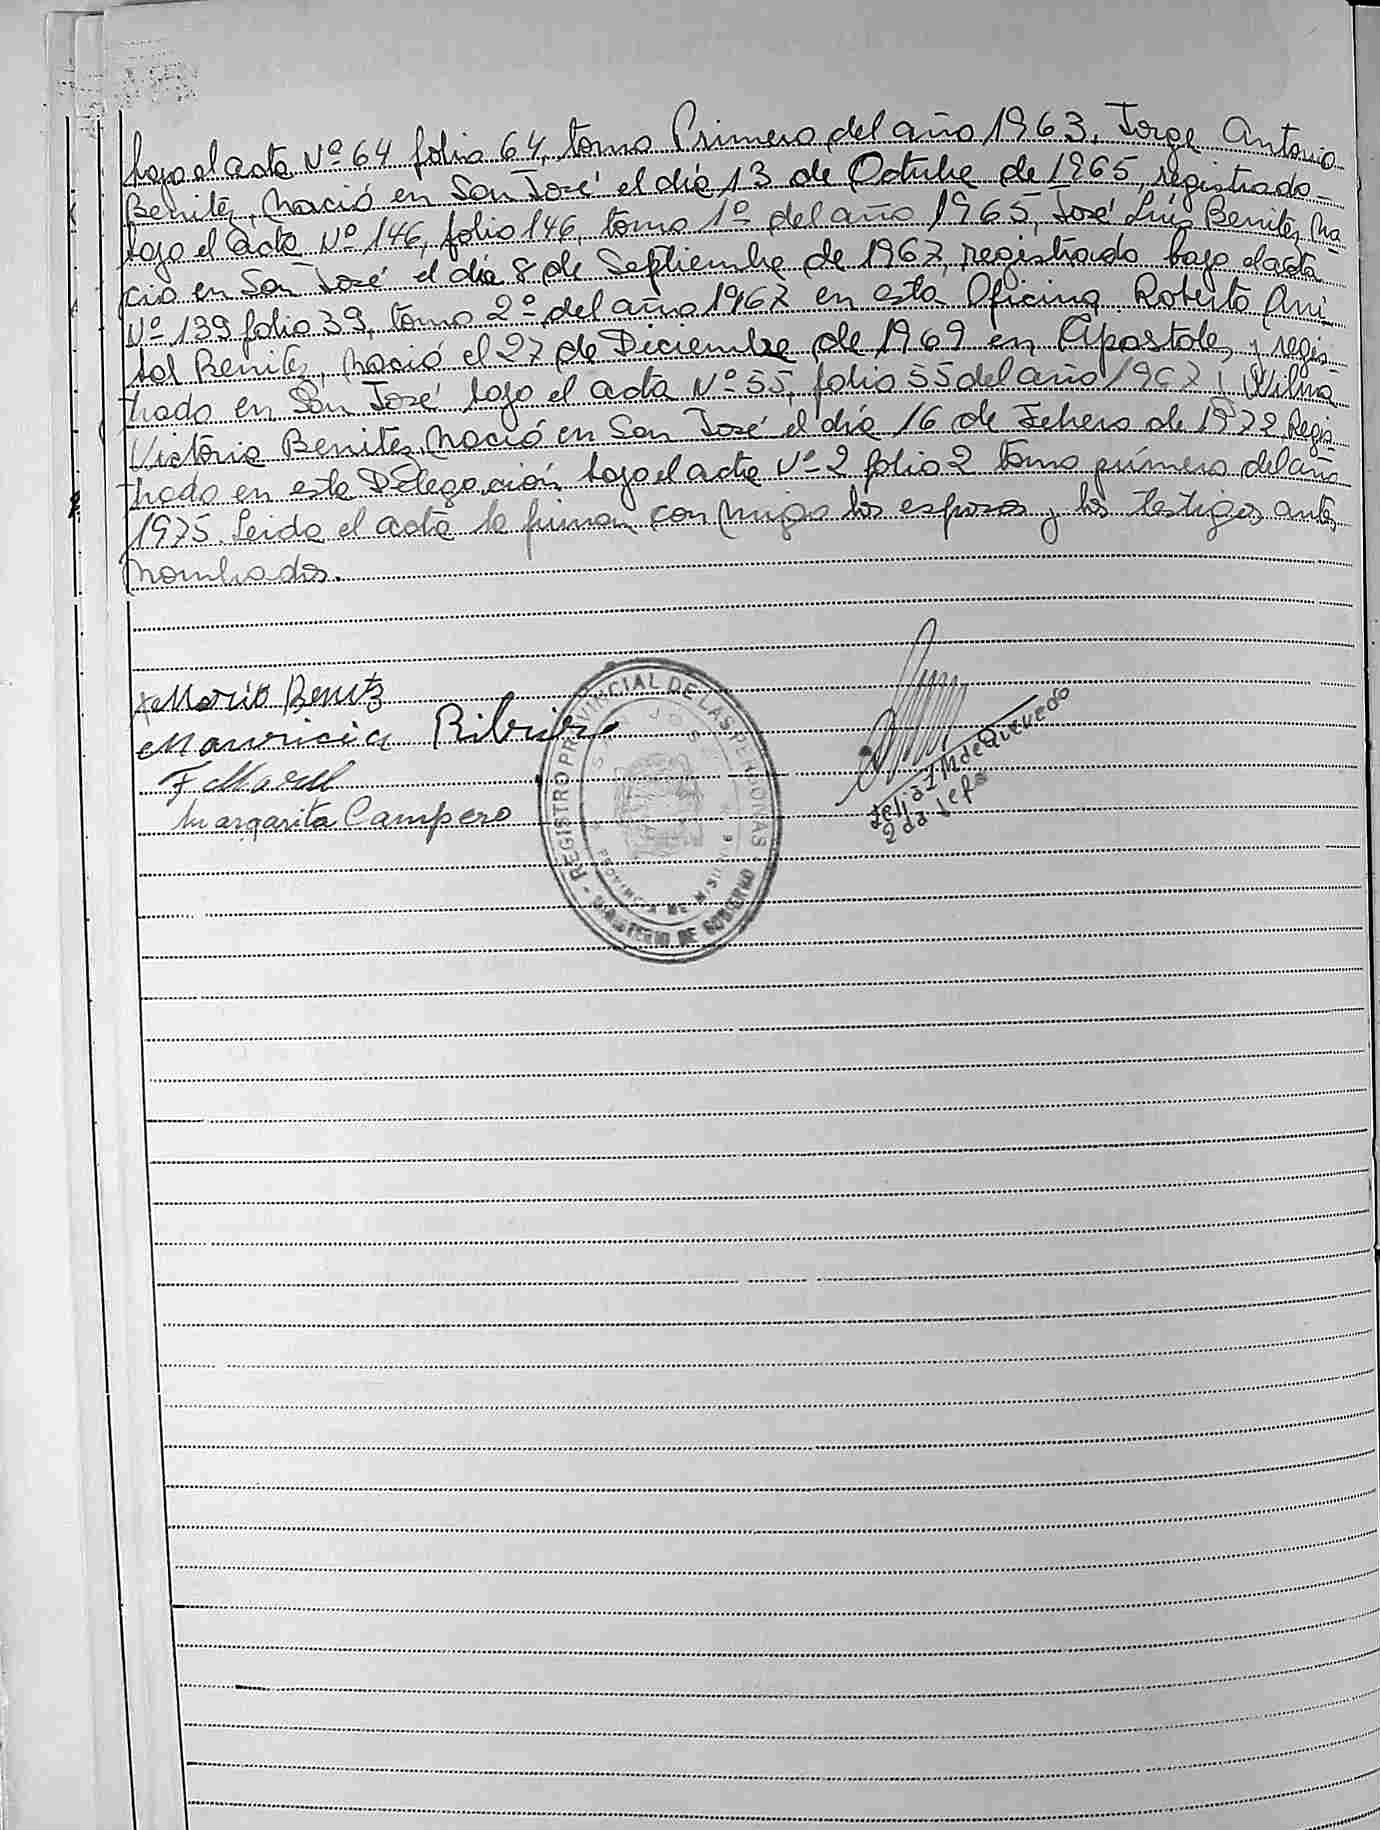 bajo el acta Nº 64 folio 64, tomo Primero del año 1963, Jorge Antonio
Benitez, Nació en San José el día 13 de Octubre de 1965, registrado
bajo el acta Nº 146, folio 146, tomo 1º del año 1965, José Luis Benitez, Na
ció en San José el día 8 de Septiembre de 1967, registrado bajo el acta
Nº 139 folio 39, tomo 2º del año 1967 en esta Oficina. Roberto Ani
bal Benitez, Nació el 27 de Diciembre de 1969 en Apostoles, y regis
trado en San José bajo el acta Nº 55, folio 55 del año 1967 y Wilma
Victoria Benitez, Nació en San José el día 16 de Febrero de 1972, Regis
trado en esta Delegación bajo el acta Nº 2 folio 2 tomo primero del año
1975. Leida el acta la firman conmigo los esposos y los testigos antes
Nombrados.
Mario Benitz
Mauricia
Margarita Campero
REGISTRO PROVINCIAL DE LAS PERSONAS
SAN JOSE
PROVINCIA DE MISIONES
MINISTERIO DE GOBIERNO
de Quevedo
2da Jefa